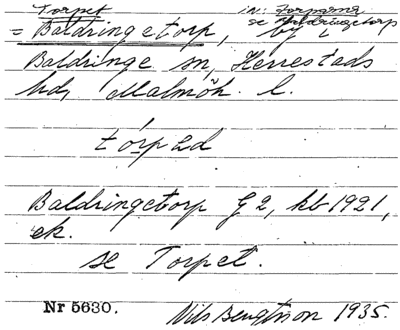 Torpet in: Torparna
= Baldringetorp, by i se Baldringetorp
Baldringe sn, Herrestads
hd, Malmöh. l.
tórp
Baldringetorp G2, kb 1921,
ek.
se Torpet.
Nr 5630. Nils Bengtson 1935.